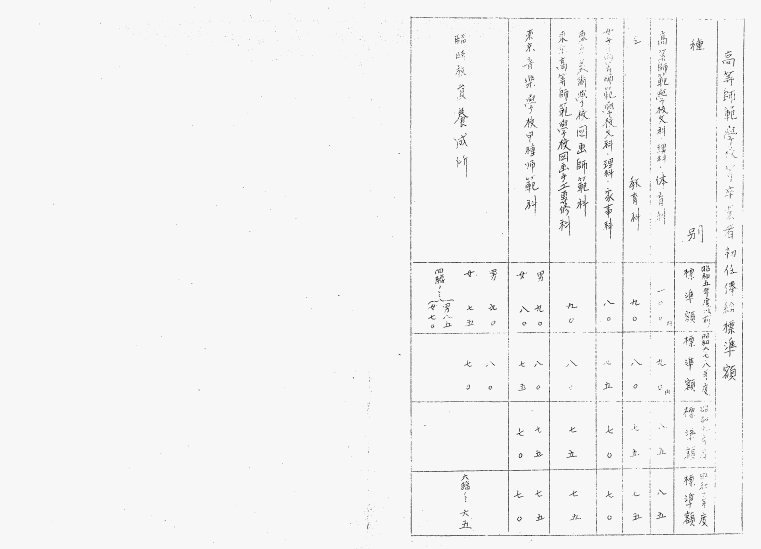 高等師範學校等卒業者初任俸給標準額
種 別
昭和五年度以前標準額
昭和六七八年度標準額
標準額
標準額
高等師範學校文科、理科、体育科
一〇〇円
九〇円
八五
八五
教育科
九〇
八〇
七五
七五
女子高等師範學校文科、理科、家事科
八〇
七五
七〇
七〇
東京美術學校図画師範科
東京高等師範學校図画手工專修科
九〇
八〇
七五
七五
東京音楽學校甲種師範科
男 九〇
女 八〇
八〇
七五
七五
七〇
七五
七〇
臨時教員養成所
男 九〇
女 七五
四臨
男 八五
女 七〇
八〇
七〇
六臨 六五